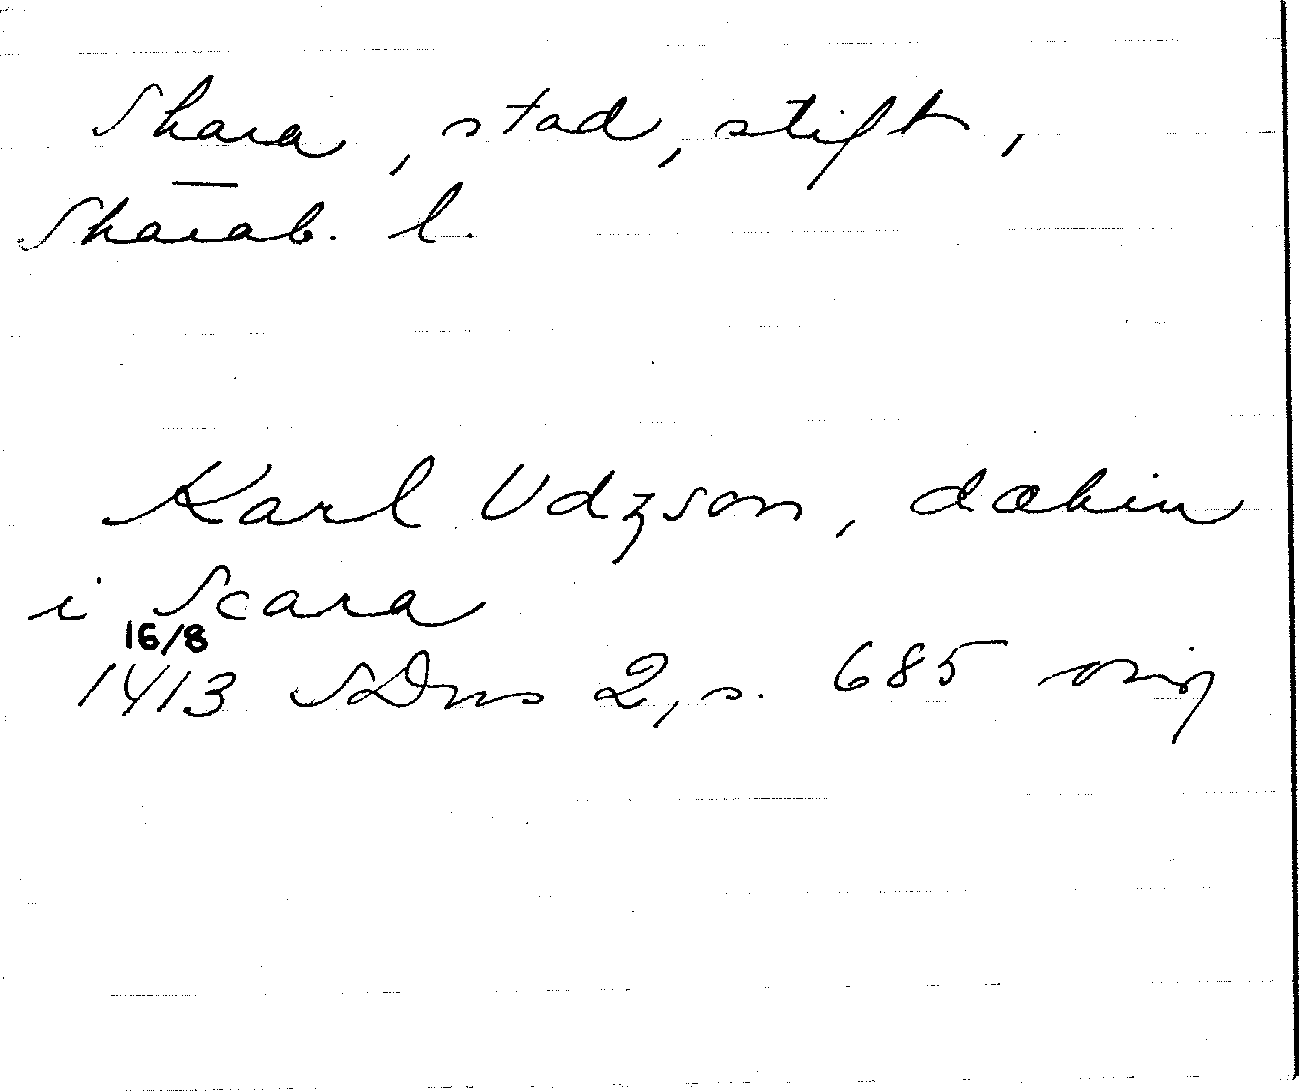 Skara, stad, stift,
Skarab. l.
Karl Udzson, dækin
i Scara
16/8
1413 SDns 2, s. 685 orig